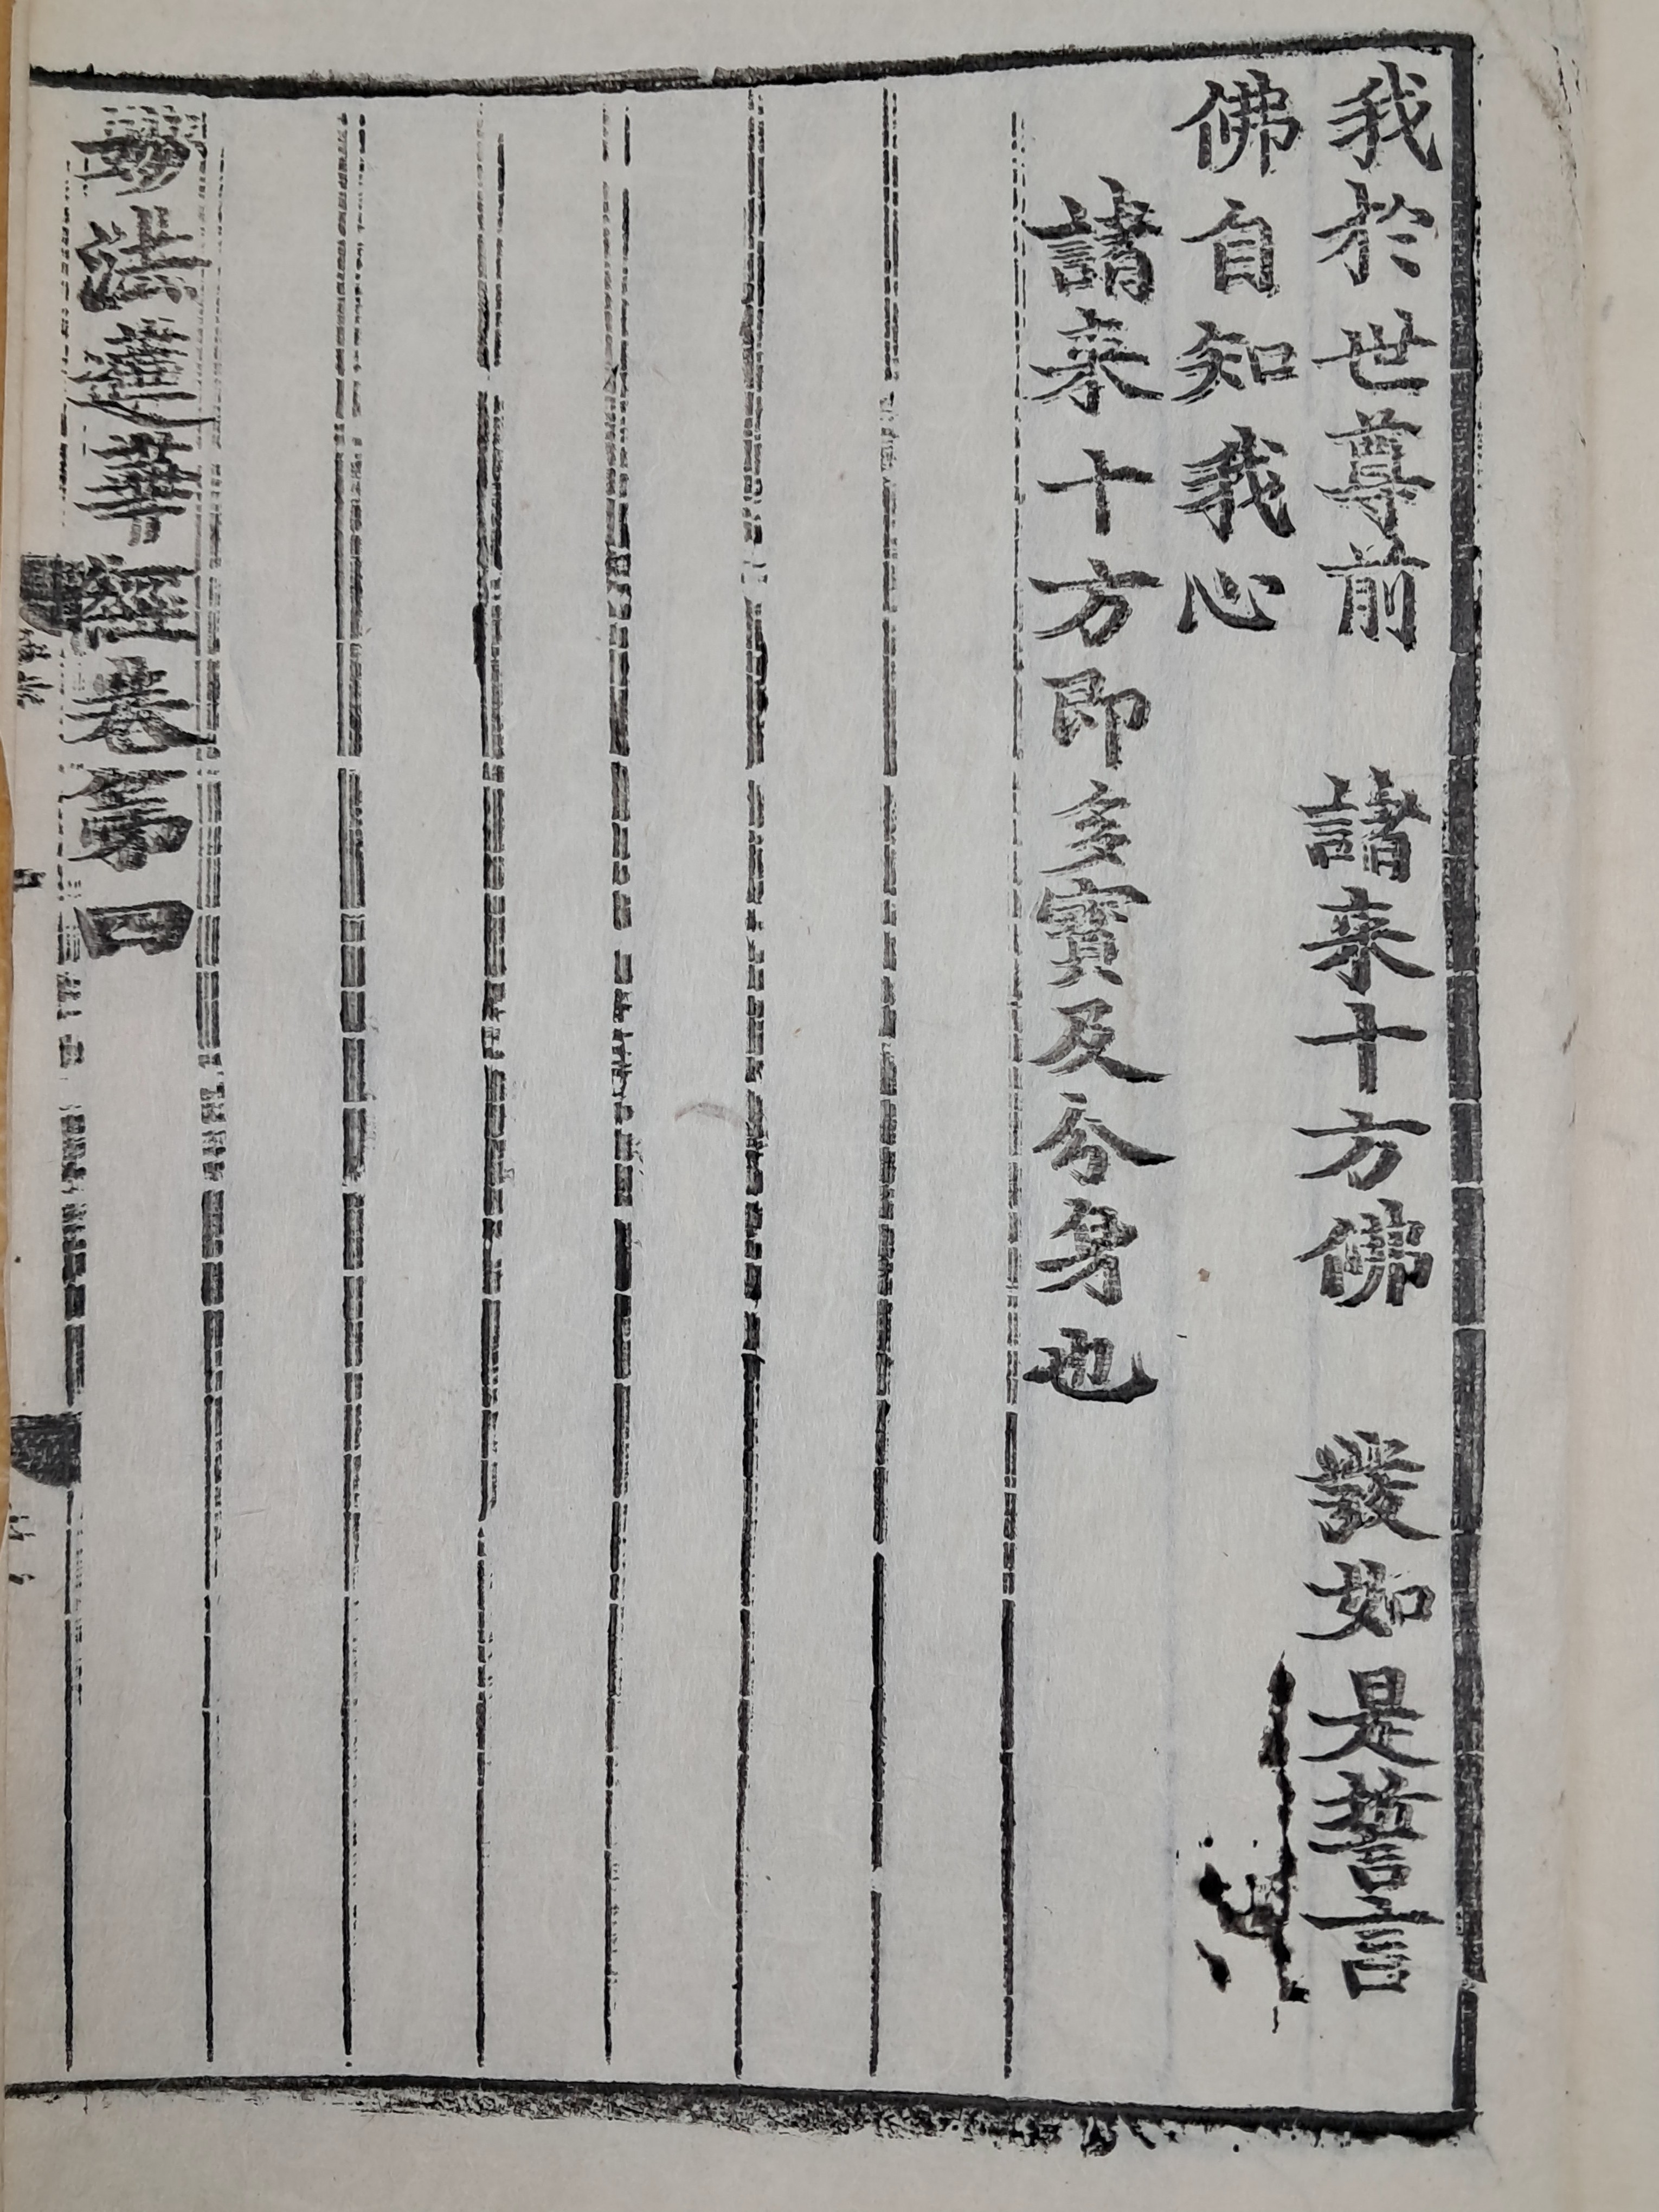 我於世尊前　諸来十方佛　發如是誓言
佛自知我心
諸来十方即多寳及分身也
妙法蓮華經卷第四